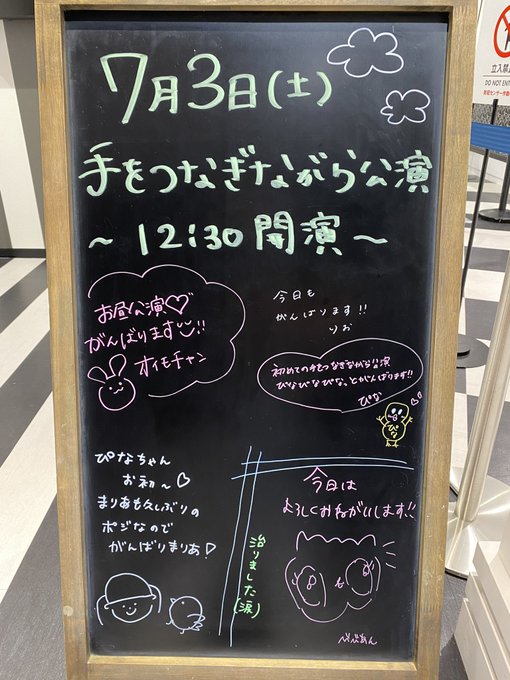 7月3日(土)
手をつなぎながら公演
~12:30開演~
お昼公演♡
がんばります!!
オイモチャン
今日も
がんばります!!
りお
初めての手をつなぎながら公演
ぴなぴなぴな、とがんばります!!
ぴな
ぴな
ぴなちゃん
お初~♡
まりあも久しぶりの
ポジなので
がんばりまりあ!
治りました(涙)
今日は
よろしくおねがいします!!
立入禁
DO NOT ENT